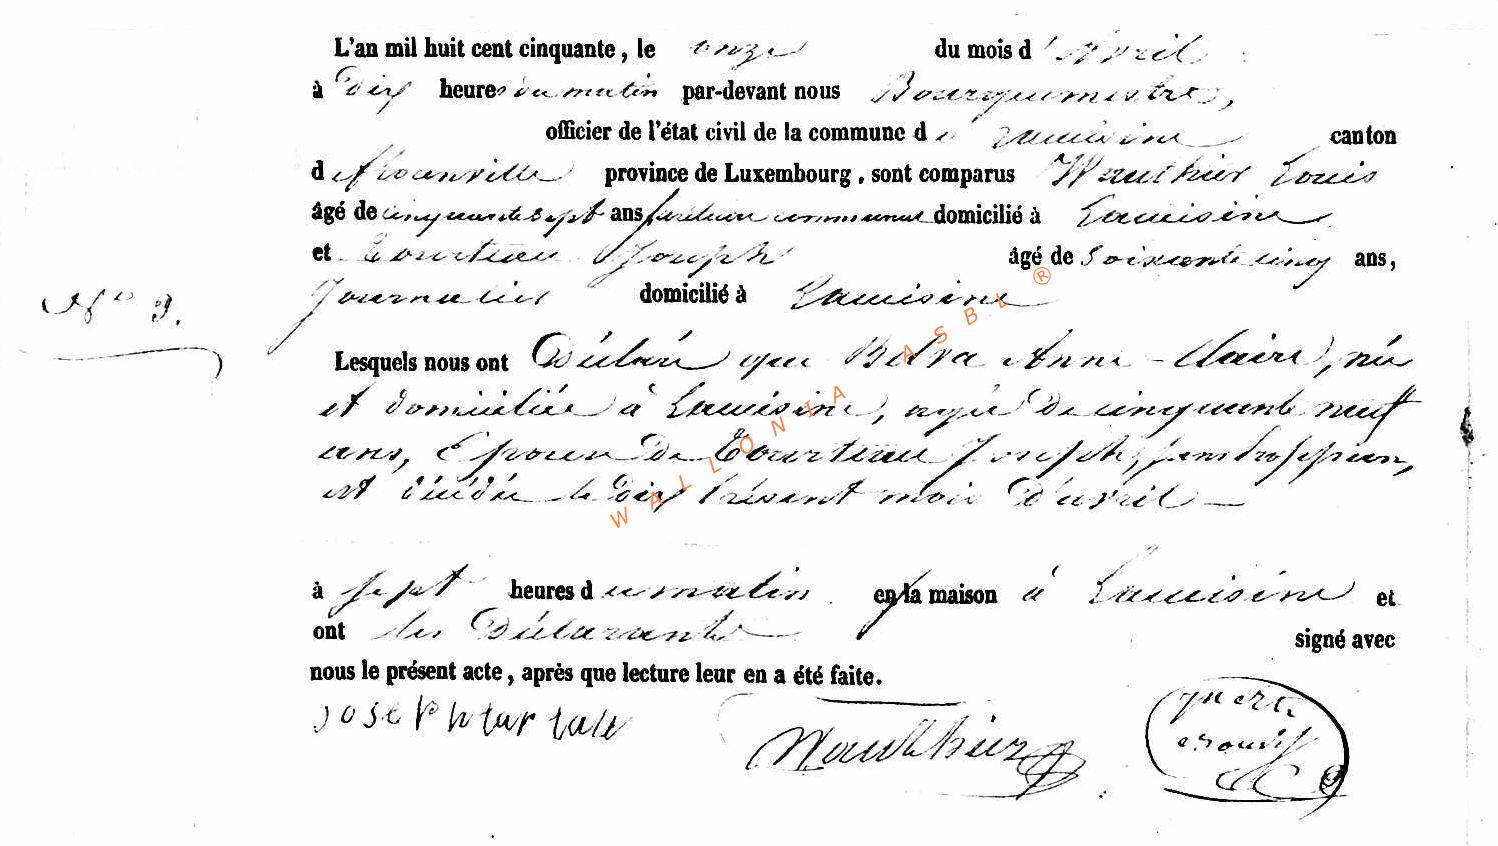 L'an mil huit cent cinquante, le onze du mois d'Avril
à Dix heures du matin par-devant nous Bourguemestre,
officier de l'état civil de la commune de Lacuisine canton
de florenville province de Luxembourg, sont comparus Wauthier Louis
âgé de cinquante sept ans communal domicilié à Lacuisine
et Tourteau Joseph âgé de soixante cinq ans,
N° 9.
Journalier domicilié à Lacuisine
Lesquels nous ont Déclaré que Belva Anne-Claire, née
et domiciliée à Lacuisine, agée de cinquante neuf
ans, Epouse de Tourteau Joseph, sans profession,
est décédée le dix présent mois d'avril
à sept heures du matin en la maison à Lacuisine et
ont les Déclarants signé avec
nous le présent acte, après que lecture leur en a été faite.
Joseph
Wauthier
WALLONIA ASBL ®